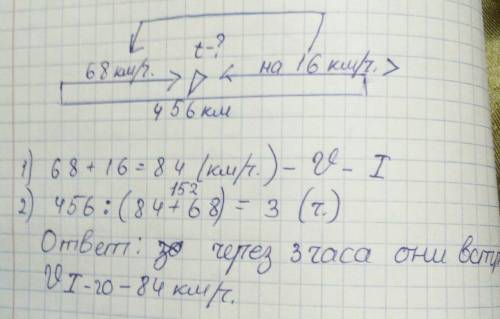 t-?
68 км/ч. на 16 км/ч. >
456 км
1) 68 + 16 = 84 (км/ч.) - V - I
152
2) 456 : (84 + 68) = 3 (ч.)
Ответ: через 3 часа они
V I-го - 84 км/ч.